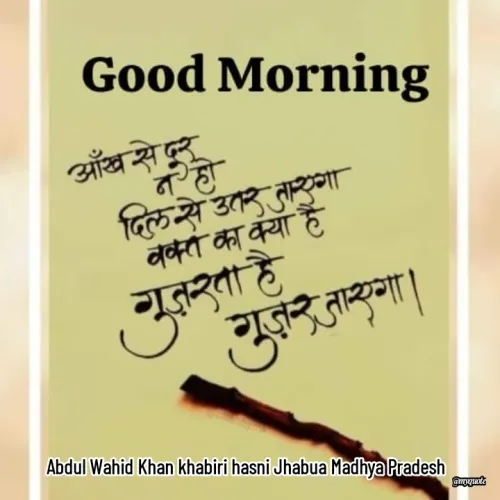 Good Morning
आँख से दूर
न हो
दिल से उतर जाएगा
वक्त का क्या है
गुज़रता है
गुज़र जाएगा।
Abdul Wahid Khan khabiri hasni Jhabua Madhya Pradesh
@myquote